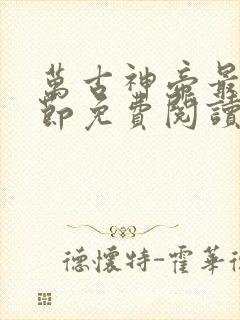 萬古神帝最
節免費閱讀
德懷特-霍華德